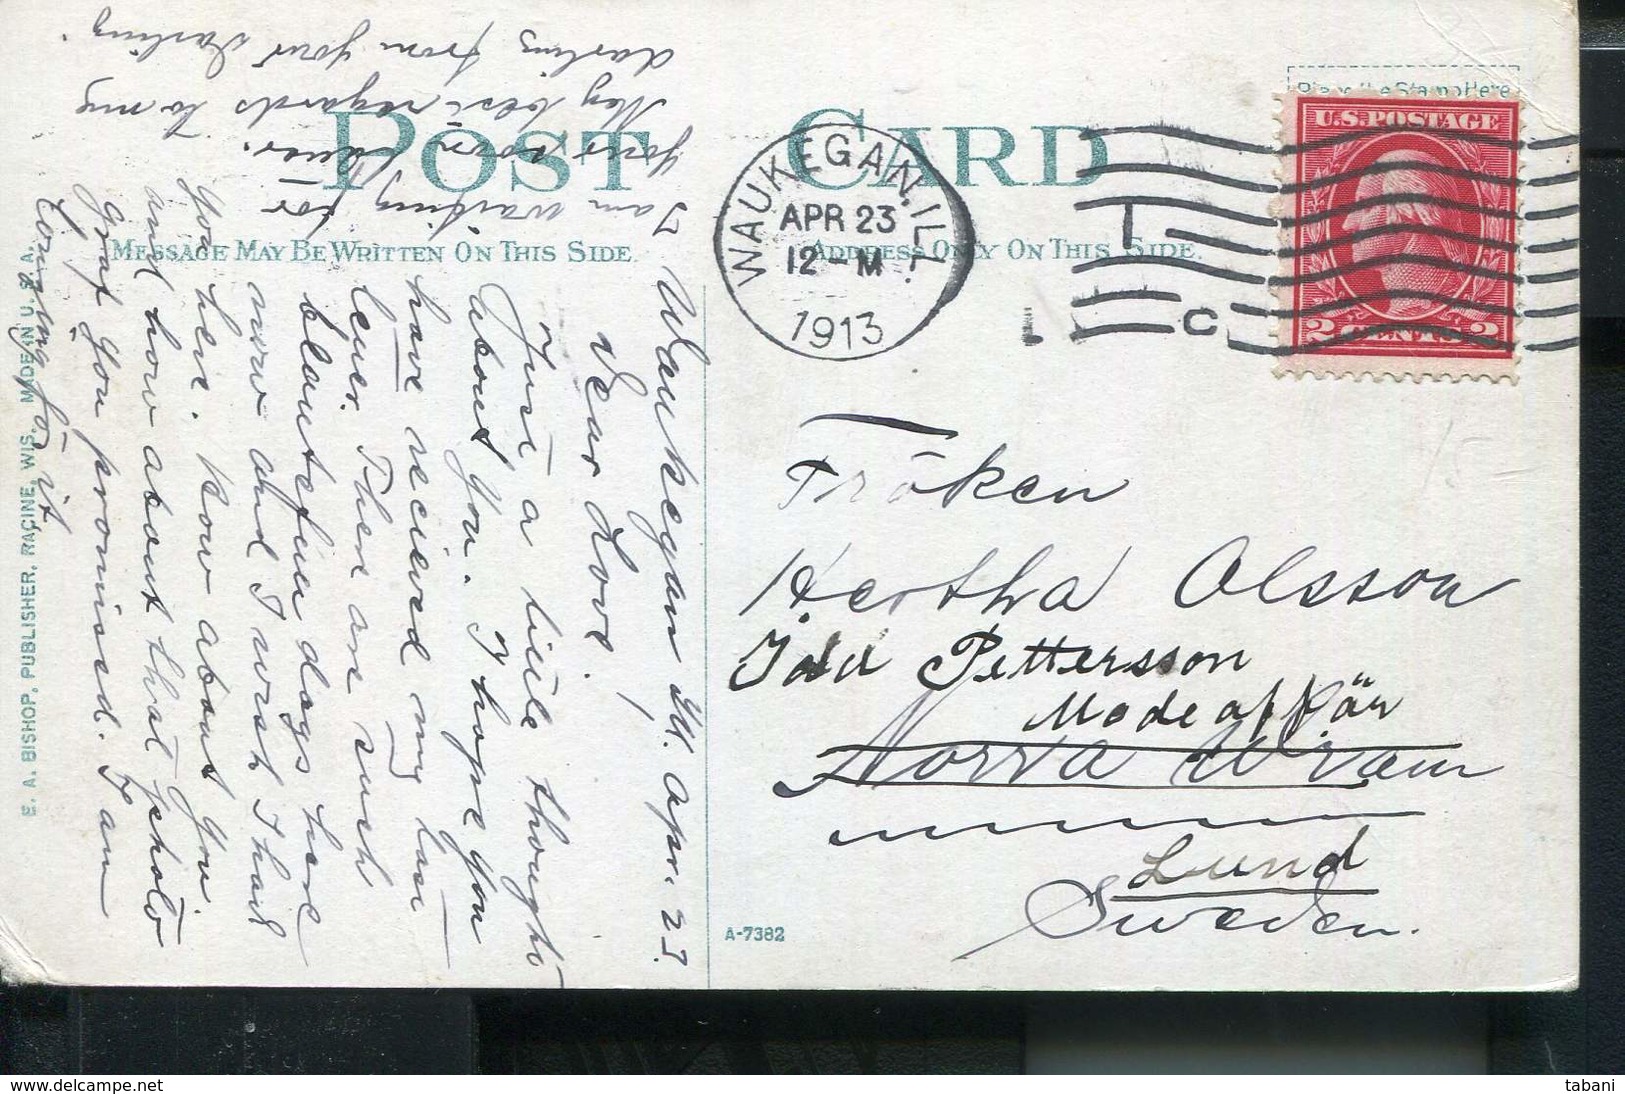 POST CARD
MESSAGE MAY BE WRITTEN ON THIS SIDE
ADDRESS ONLY ON THIS SIDE.
Place the Stamp Here
U.S. POSTAGE
2 CENTS 2
WAUKEGAN, ILL.
APR 23
12-M
1913
I
C
Fröken
Hertha Olsson
Ida Pettersson
Modeaffär
Norra Wram
Lund
Sweden.
A-7382
E. A. BISHOP, PUBLISHER, RACINE, WIS. MADE IN U. S. A.
Waukegan Ill. Apr. 23.
Dear Love!
Just a little thought
about you. I hope you
have recieved my last
letter. There are such
beautefull days here
now and I wish I had
you here. How about you
and how about that photo
graf you promised. I am
longing for it
I am waiting for
your letter.
My best regards to my
darling from your darling.
tabani